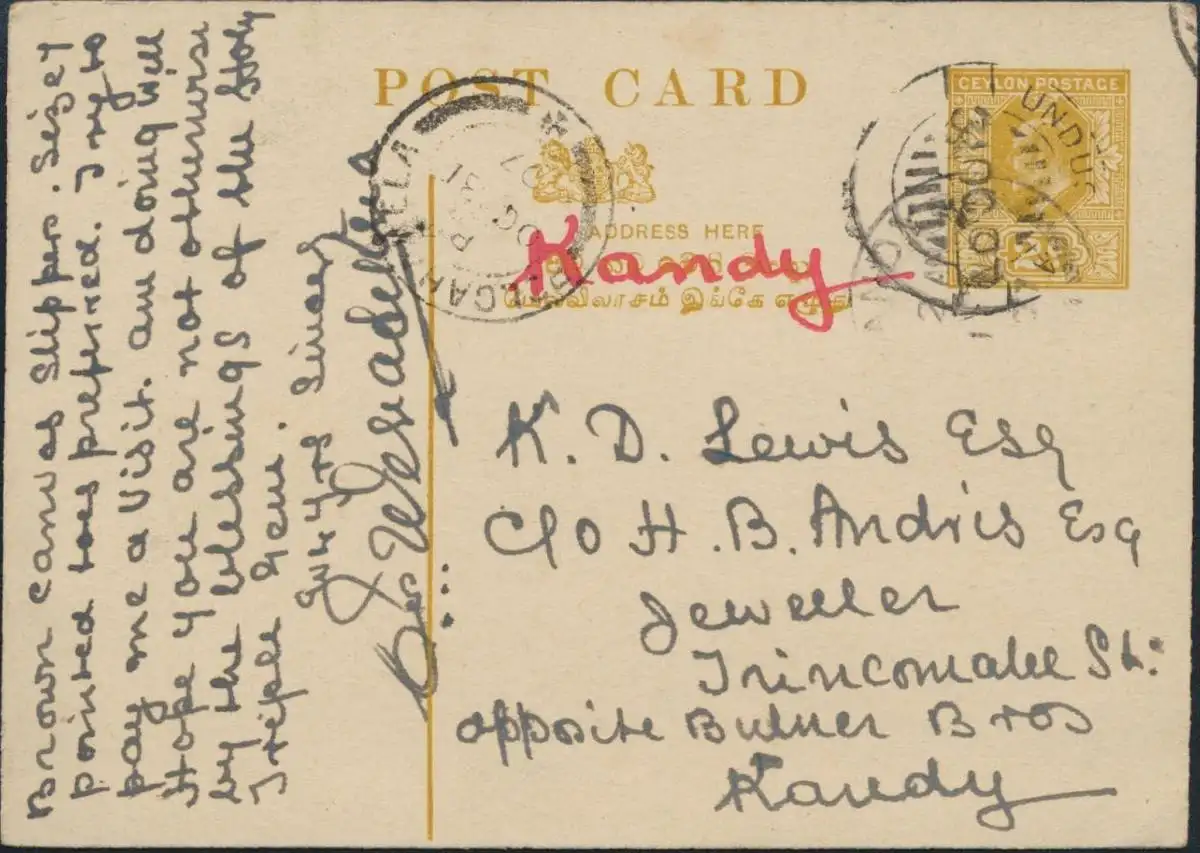 POST CARD
CEYLON POSTAGE
ADDRESS HERE
மேல்விலாசம் இங்கே எழுது
Kandy
K. D. Lewis Esq
C/o H. B. Andris Esq
Jeweller
Trincomalee St:
opposite Butner Bros
Kandy
Brown canvas slippers. Size 7
pointed toes preferred. Try to
pay me a visit. am doing well
Hope you are not otherwise
by the blessings of the Holy
Triple Gem.
yrs Sincerely